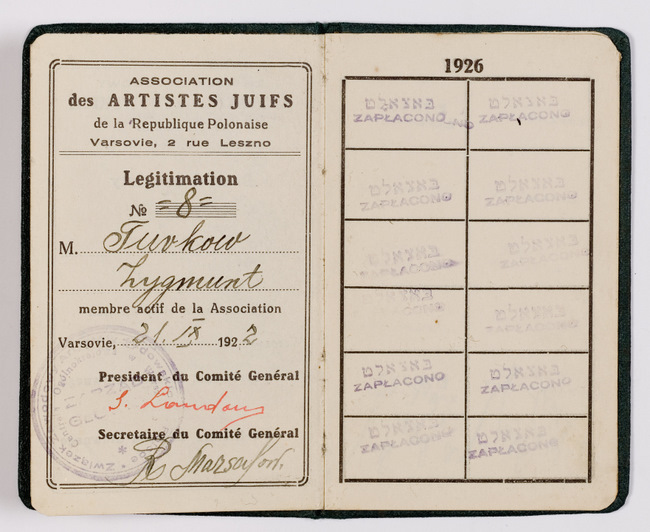 ASSOCIATION
des ARTISTES JUIFS
de la Republique Polonaise
Varsovie, 2 rue Leszno
Legitimation
№ =8=
M. Turkow
Zygmunt
membre actif de la Association
Varsovie, 21. IX 1922
President du Comité Général
Secretaire du Comité Général
1926
באצאלט באצאלט
ZAPŁACONO ZAPŁACONO
באצאלט באצאלט
ZAPŁACONO ZAPŁACONO
באצאלט באצאלט
ZAPŁACONO ZAPŁACONO
באצאלט באצאלט
ZAPŁACONO ZAPŁACONO
באצאלט באצאלט
ZAPŁACONO ZAPŁACONO
באצאלט באצאלט
ZAPŁACONO ZAPŁACONO